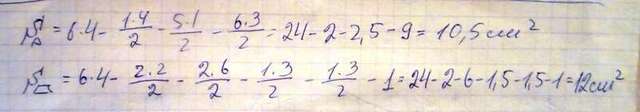 S△ = 6·4 - 1·4/2 - 5·1/2 - 6·3/2 = 24-2-2,5-9 = 10,5 см²
S▱ = 6·4 - 2·2/2 - 2·6/2 - 1·3/2 - 1·3/2 - 1 = 24-2-6-1,5-1,5-1=12см²